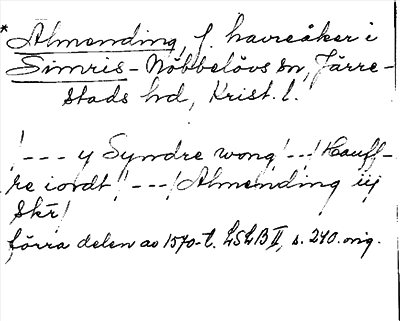 * Almending, f. havreåker i
Simris-Nöbbelövs sn, Järre-
stads hd, Krist. l.
/--- y Syndre wong /--/ Hauff-
re iordt /---/ Almending iij
Skr/
förra delen av 1570-t. LSLB II, s. 240. orig.